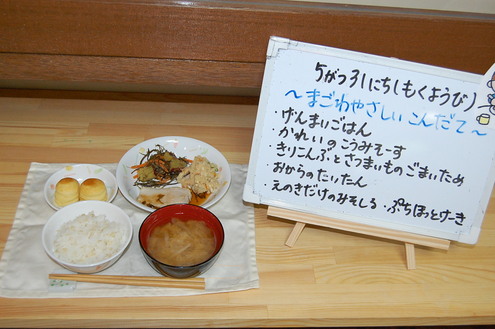 5がつ31にち(もくようび)
～まごわやさしいこんだて～
・げんまいごはん
・かれいのこうみそーす
・きりこんぶとさつまいものごまいため
・おからのたいたん
・えのきだけのみそしる ・ぷちほっとけーき